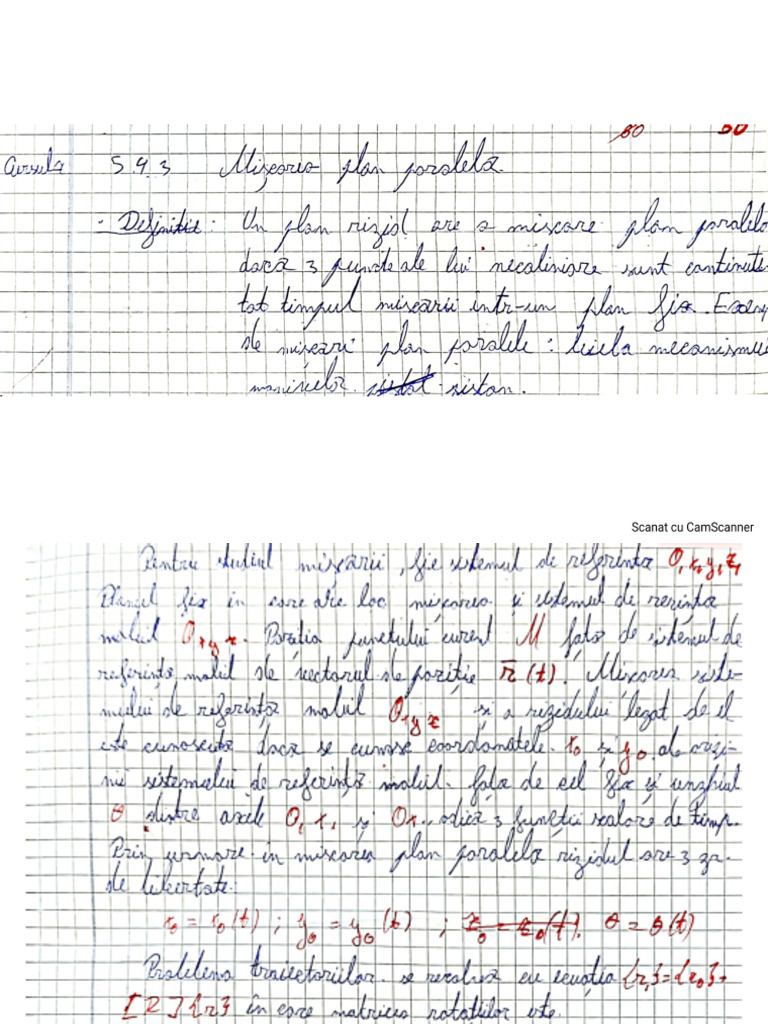 80 80
Cursul4 5.4.3 Mişcarea plan paralelă.
- Definitie: Un plan rizid are o mişcare plan paralelo
dacă 3 puncte ale lui necoliniare sunt continute
tot timpul miscarii intr-un plan fix. Exemp
de mişcari plan paralele: biela mecanismului
manivelor pistan.
Scanat cu CamScanner
Pentru studiul mişcarii, fie sistemul de referinta O₁x₁y₁z₁
fix in care are loc mişcarea şi sistemul de
mobil Oxyz. Pozitia punctului curent M fata de sistemul de
referintă mobil de vectorul de poziţie r̄(t). Mişcarea siste-
mului de referinţă mobil Oxyz si a rizidului legat de el
este cunoscută dacă se cunosc coordonatele x₀ şi y₀ ale orizi-
nii sistemului de referinţă mobil fata de cel fix şi unzhiul
θ dintre axele O₁x₁ şi Ox, adică 3 funcţii scalare de timp.
Prin urmare in mişcarea plan paralelă rizidul are 3 zr.
de libertate:
x₀ = x₀(t) ; y₀ = y₀(t) ; z₀ = z₀(t). θ = θ(t)
Problema traiectoriilor se rezolvă cu ecuatia {r₁}={r₀}+
[R]{r} in care matricea rotaţiilor este.